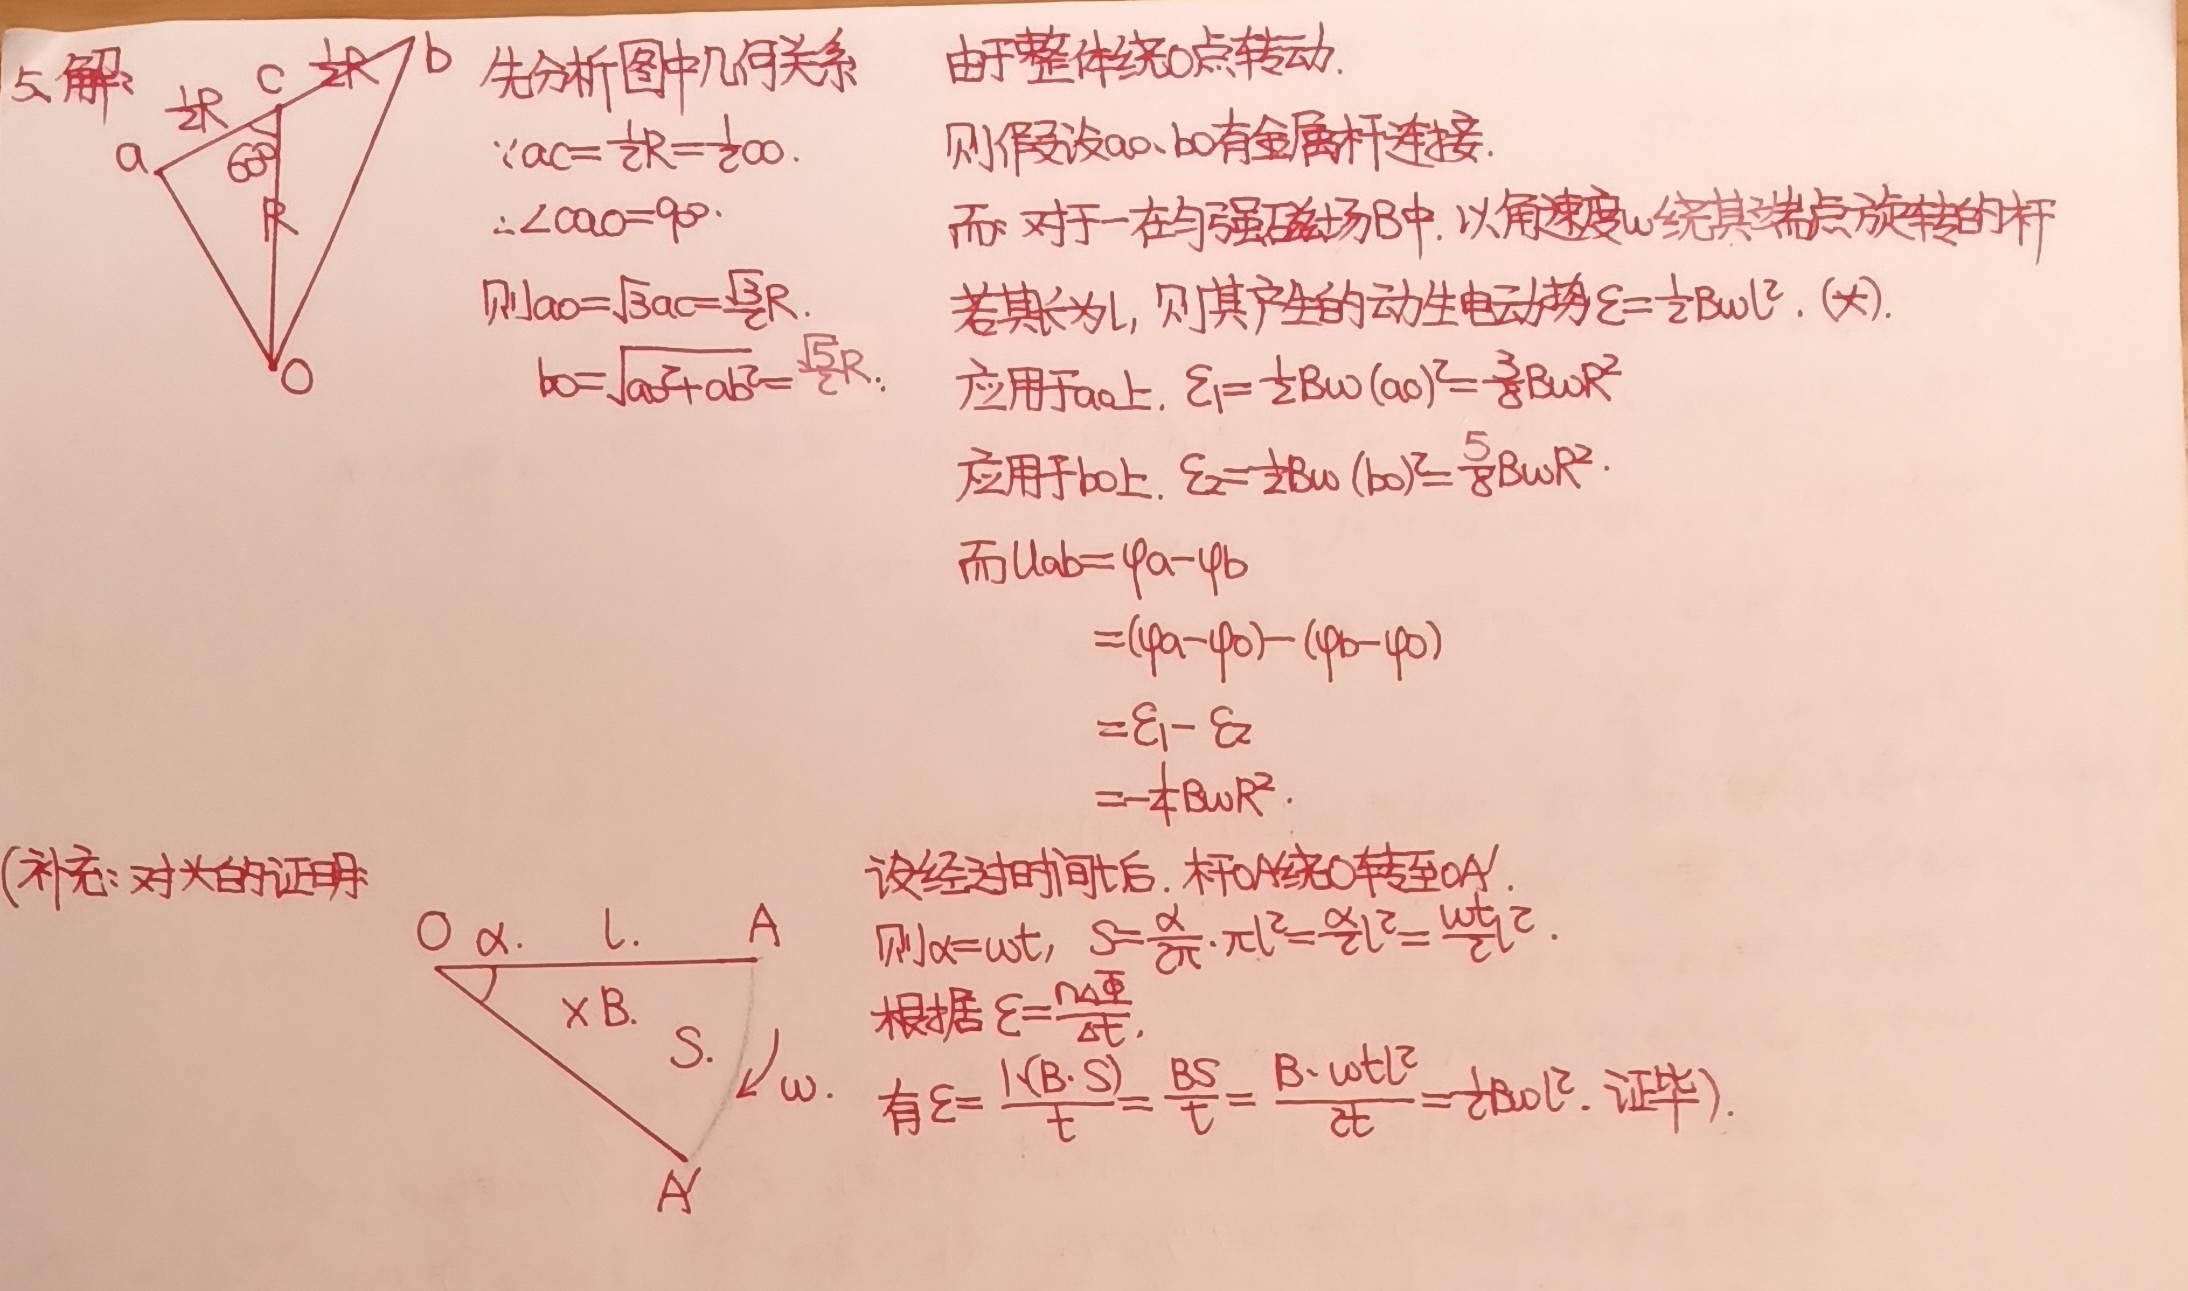 5、解:
C
½R
b
½R
a
60°
R
O
先分析图中几何关系
∵ac=½R=½co.
∴∠cao=90°.
则ao=√3ac=√3/2R.
bo=√(ao²+ab²)=√5/2R.
由于整体绕O点转动.
则假设ao、bo有金属杆连接.
而对于一在匀强磁场B中.以角速度ω绕其端点旋转的杆
若其长为l,则其产生的动生电动势ε=½Bωl².(*).
应用于ao上.ε₁=½Bω(ao)²=3/8BωR²
应用于bo上.ε₂=½Bω(bo)²=5/8BωR².
而Uab=φa-φb
=(φa-φo)-(φb-φo)
=ε₁-ε₂
=-¼BωR².
(补充:对*的证明:
O α. l. A
×B.
S.
ω.
A'
设经过时间t后.杆OA绕O转至OA'.
则α=ωt, S=α/2π·πl²=α/2l²=ωt/2l².
根据ε=nΔΦ/Δt.
有ε=1·(B·S)/t=BS/t=B·ωtl²/2t=½Bωl².证毕).